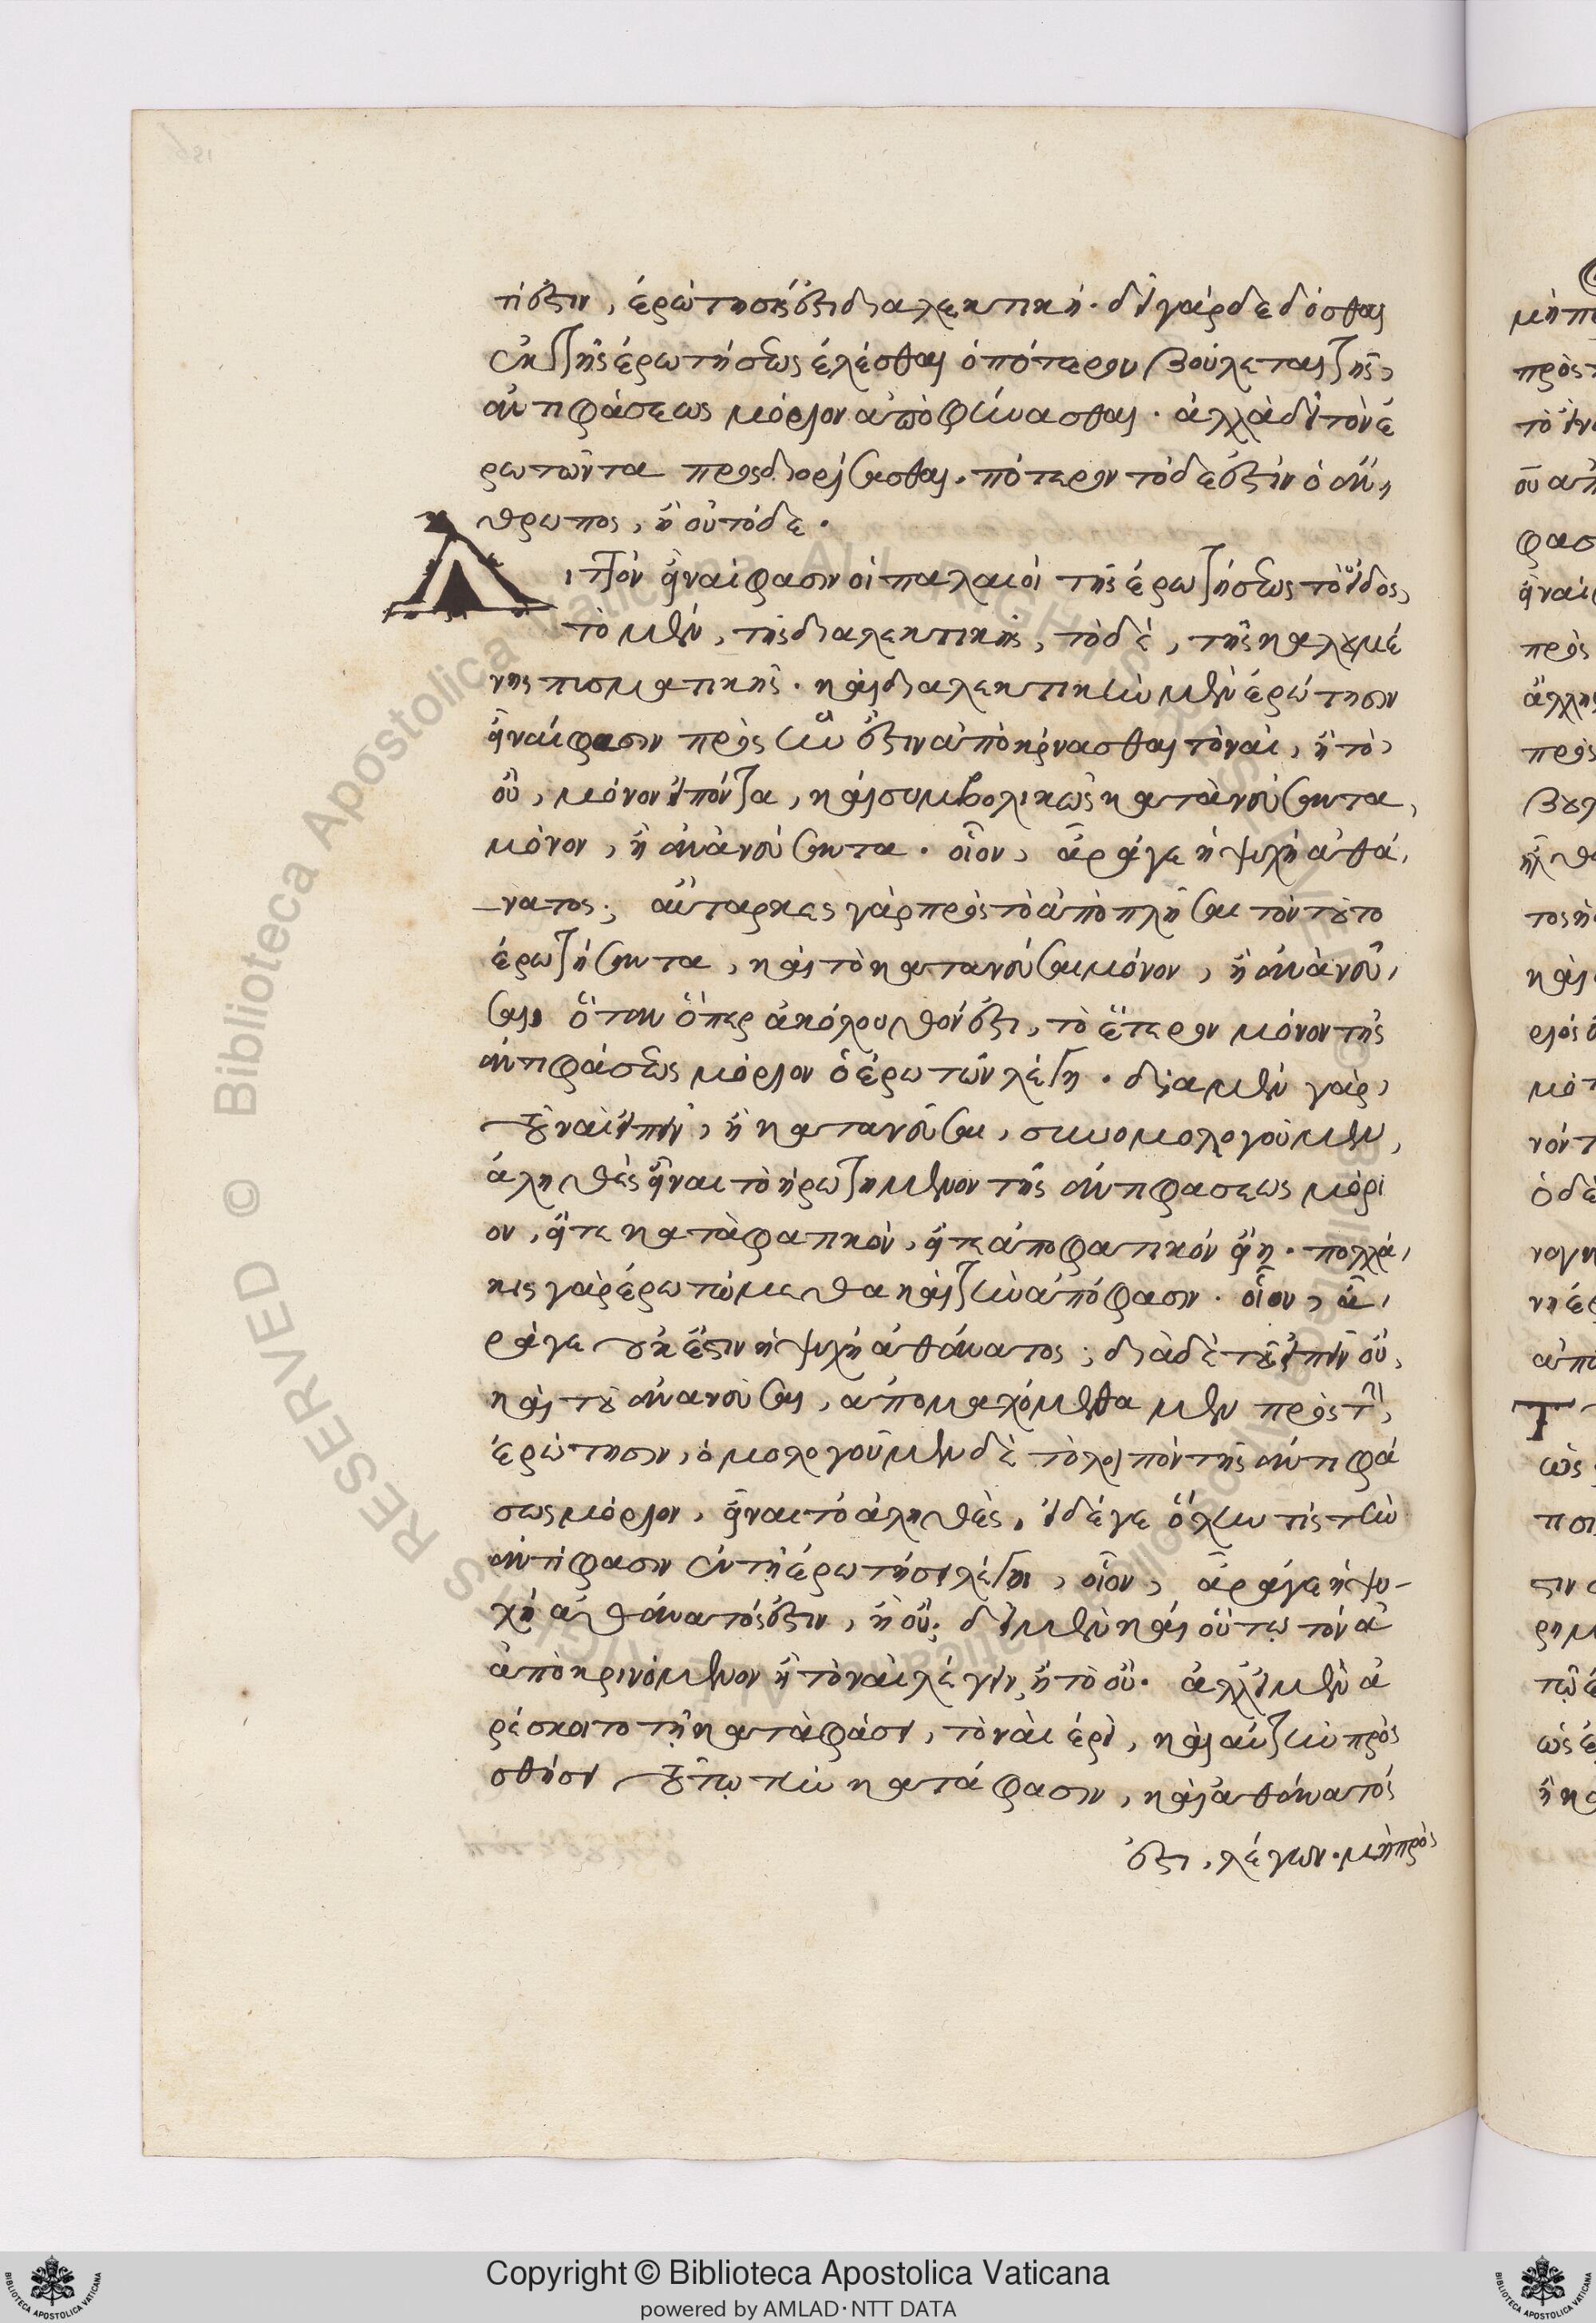 τί ἐστιν, ἐρώτησίς ἐστι διαλεκτική. δεῖ γὰρ δεδόσθαι
ἐκ τῆς ἐρωτήσεως ἑλέσθαι ὁπότερον βούλεται τῆς
ἀντιφάσεως μόριον ἀποφήνασθαι. ἀλλὰ δεῖ τὸν ἐ
ρωτῶντα προσδιορίσασθαι. πότερον τόδε ἐστὶν ὁ ἄν
θρωπος, ἢ οὐ τόδε.
Διττὸν εἶναί φασιν οἱ παλαιοὶ τῆς ἐρωτήσεως τὸ εἶδος,
τὸ μὲν, τῆς διαλεκτικῆς, τὸ δὲ, τῆς καλουμέ
νης πυσματικῆς. καὶ διαλεκτικὴν μὲν ἐρώτησιν
εἶναί φασιν πρὸς ἣν ἔστιν ἀποκρίνασθαι τὸ ναὶ, ἢ τὸ
οὒ, μόνον εἰπόντα, καὶ συμβολικῶς κατανεύσαντα
μόνον, ἢ ἀνανεύσαντα. οἷον, ἆρά γε ἡ ψυχὴ ἀθά
νατος; αὔταρκες γὰρ πρὸς τὸ ἀποπλῆσαι τὸν τοῦτο
ἐρωτήσαντα, καὶ τὸ κατανεῦσαι μόνον, ἢ ἀνανεῦ
σαι, ὅταν ὅπερ ἀκόλουθόν ἐστι, τὸ ἕτερον μόνον τῆς
ἀντιφάσεως μόριον ὁ ἐρωτῶν λέγῃ. διὰ μὲν γὰρ
τοῦ ναὶ εἰπεῖν, ἢ κατανεῦσαι, συνομολογοῦμεν
ἀληθὲς εἶναι τὸ ἠρωτημένον τῆς ἀντιφάσεως μόρι
ον, εἴτε καταφατικὸν, εἴτε ἀποφατικὸν εἴη. πολλά
κις γὰρ ἐρωτώμεθα καὶ τὴν ἀπόφασιν. οἷον, ἆ
ρά γε οὐκ ἔστιν ἡ ψυχὴ ἀθάνατος; διὰ δὲ τοῦ εἰπεῖν οὒ,
καὶ τοῦ ἀνανεῦσαι, ἀπομαχόμεθα μὲν πρὸς τὴν
ἐρώτησιν, ὁμολογοῦμεν δὲ τὸ λοιπὸν τῆς ἀντιφά
σεως μόριον, εἶναι τὸ ἀληθὲς, εἰ δέ γε ὅλην τις τὴν
ἀντίφασιν ἐν τῇ ἐρωτήσει λέγοι, οἷον, ἆρά γε ἡ ψυ-
χὴ ἀθάνατός ἐστιν, ἢ οὔ; δεῖ μὲν καὶ οὕτω τὸν ἀ
ἀποκρινόμενον ἢ τὸ ναὶ λέγειν, ἢ τὸ οὔ. ἀλλ' εἰ μὲν ἀ
ρέσκοιτο τῇ καταφάσει, τὸ ναὶ ἐρεῖ, καὶ αὐτὴν προσ
θήσει τούτῳ τὴν κατάφασιν, καὶ ἀθάνατός
ἐστι, λέγων. μὴ πρὸς